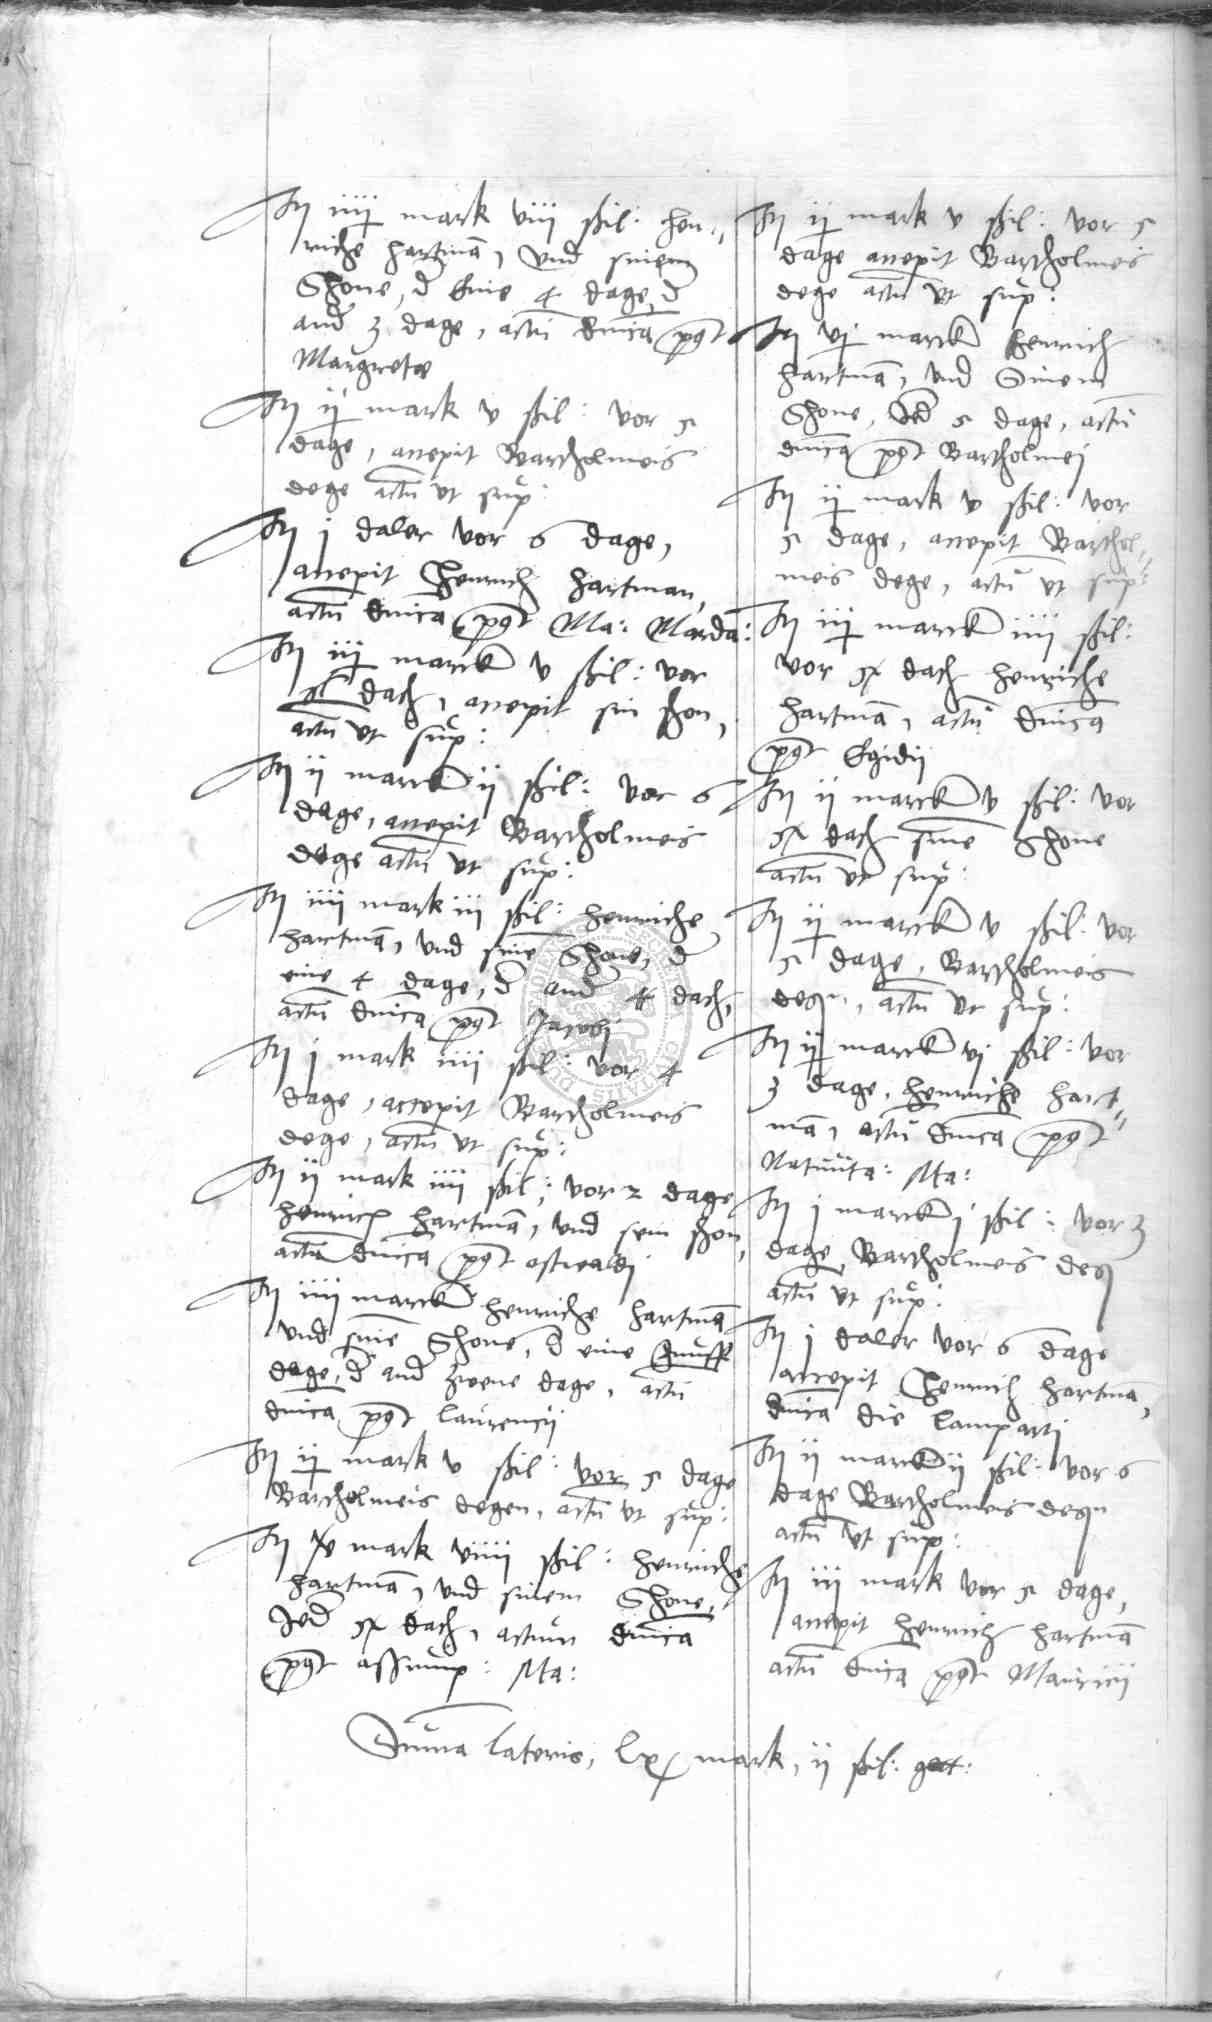 Itm iiij mark viii ßil: hen„
riche hartmā, vnd sinem
Shone, d eine 4 dage, d
and 3 dage, actū dnīca post
Margrete
Itm ij mark v ßil: vor 5
dage, accepit Bartholmeis
dege actū vt sup:
Itm j daler vor 6 dage,
accepit Henrich hartman,
actū dnīca post Ma: Magda:
Itm iij marck v ßil: vor
dach, accepit sin shon,
actū vt sup:
Itm ii marck ij ßil: vor 6
dage, accepit Bartholmeis
dege actū vt sup:
Itm iiii mark iii ßil: henriche
hartmā, vnd sinē Shone, d
eine 4 dage, d and 4 dach,
actū dnīca post Jacobj
Itm j mark iiii ßil: vor 4
dage, accepit Bartholmeis
dege, actū vt sup:
Itm ii mark iiii ßil: vor 2 dage
henrich hartmā, vnd sein shon,
actū dnīca post oswaldj
Itm iiii marck henriche hartmā
vnd sinē Shone, d eine
dage, d and zwene dage, actū
dnīca post laurencij
Itm ij mark v ßil: vor 5 dage
Bartholmeis degen, actū vt sup:
Itm mark viiii ßil: henriche
hartmā, vnd sinem Shone,
Jed dach, actum dnīca
post assump: Ma:
Itm ij mark v ßil: vor 5
dage accepit Bartholmeis
dege actū vt sup:
Itm vj marck henrich
hartmā, vnd Sinem
Shone, Jed 5 dage, actū
dnīca post Bartholmej
Itm ij mark v ßil: vor
5 dage, accepit Barthol„
meis dege, actū vt sup:
Itm iij marck iiii ßil:
vor dach henriche
hartmā, actū dnīca
post Egidij
Itm ii marck v ßil: vor
dach sinē Shone
actū vt sup:
Itm ij marck v ßil: vor
5 dage, Bartholmeis
actū vt sup:
Itm ij marck vj ßil: vor
3 dage, henriche hart„
mā, actū dnīca post
Natiuita: Ma:
Itm j marck j ßil: vor 3
dage, Bartholmeis
actū vt sup:
Itm j daler vor 6 dage
accepit Henrich hartmā,
dnīca die lampartj
Itm ii marck ij ßil: vor 6
dage Bartholmeis
actū vt sup:
Itm iii mark vor 5 dage,
accepit henrich hartmā
actū dnīca post Mauricij
Suma lateris, lx mark, ij ßil: